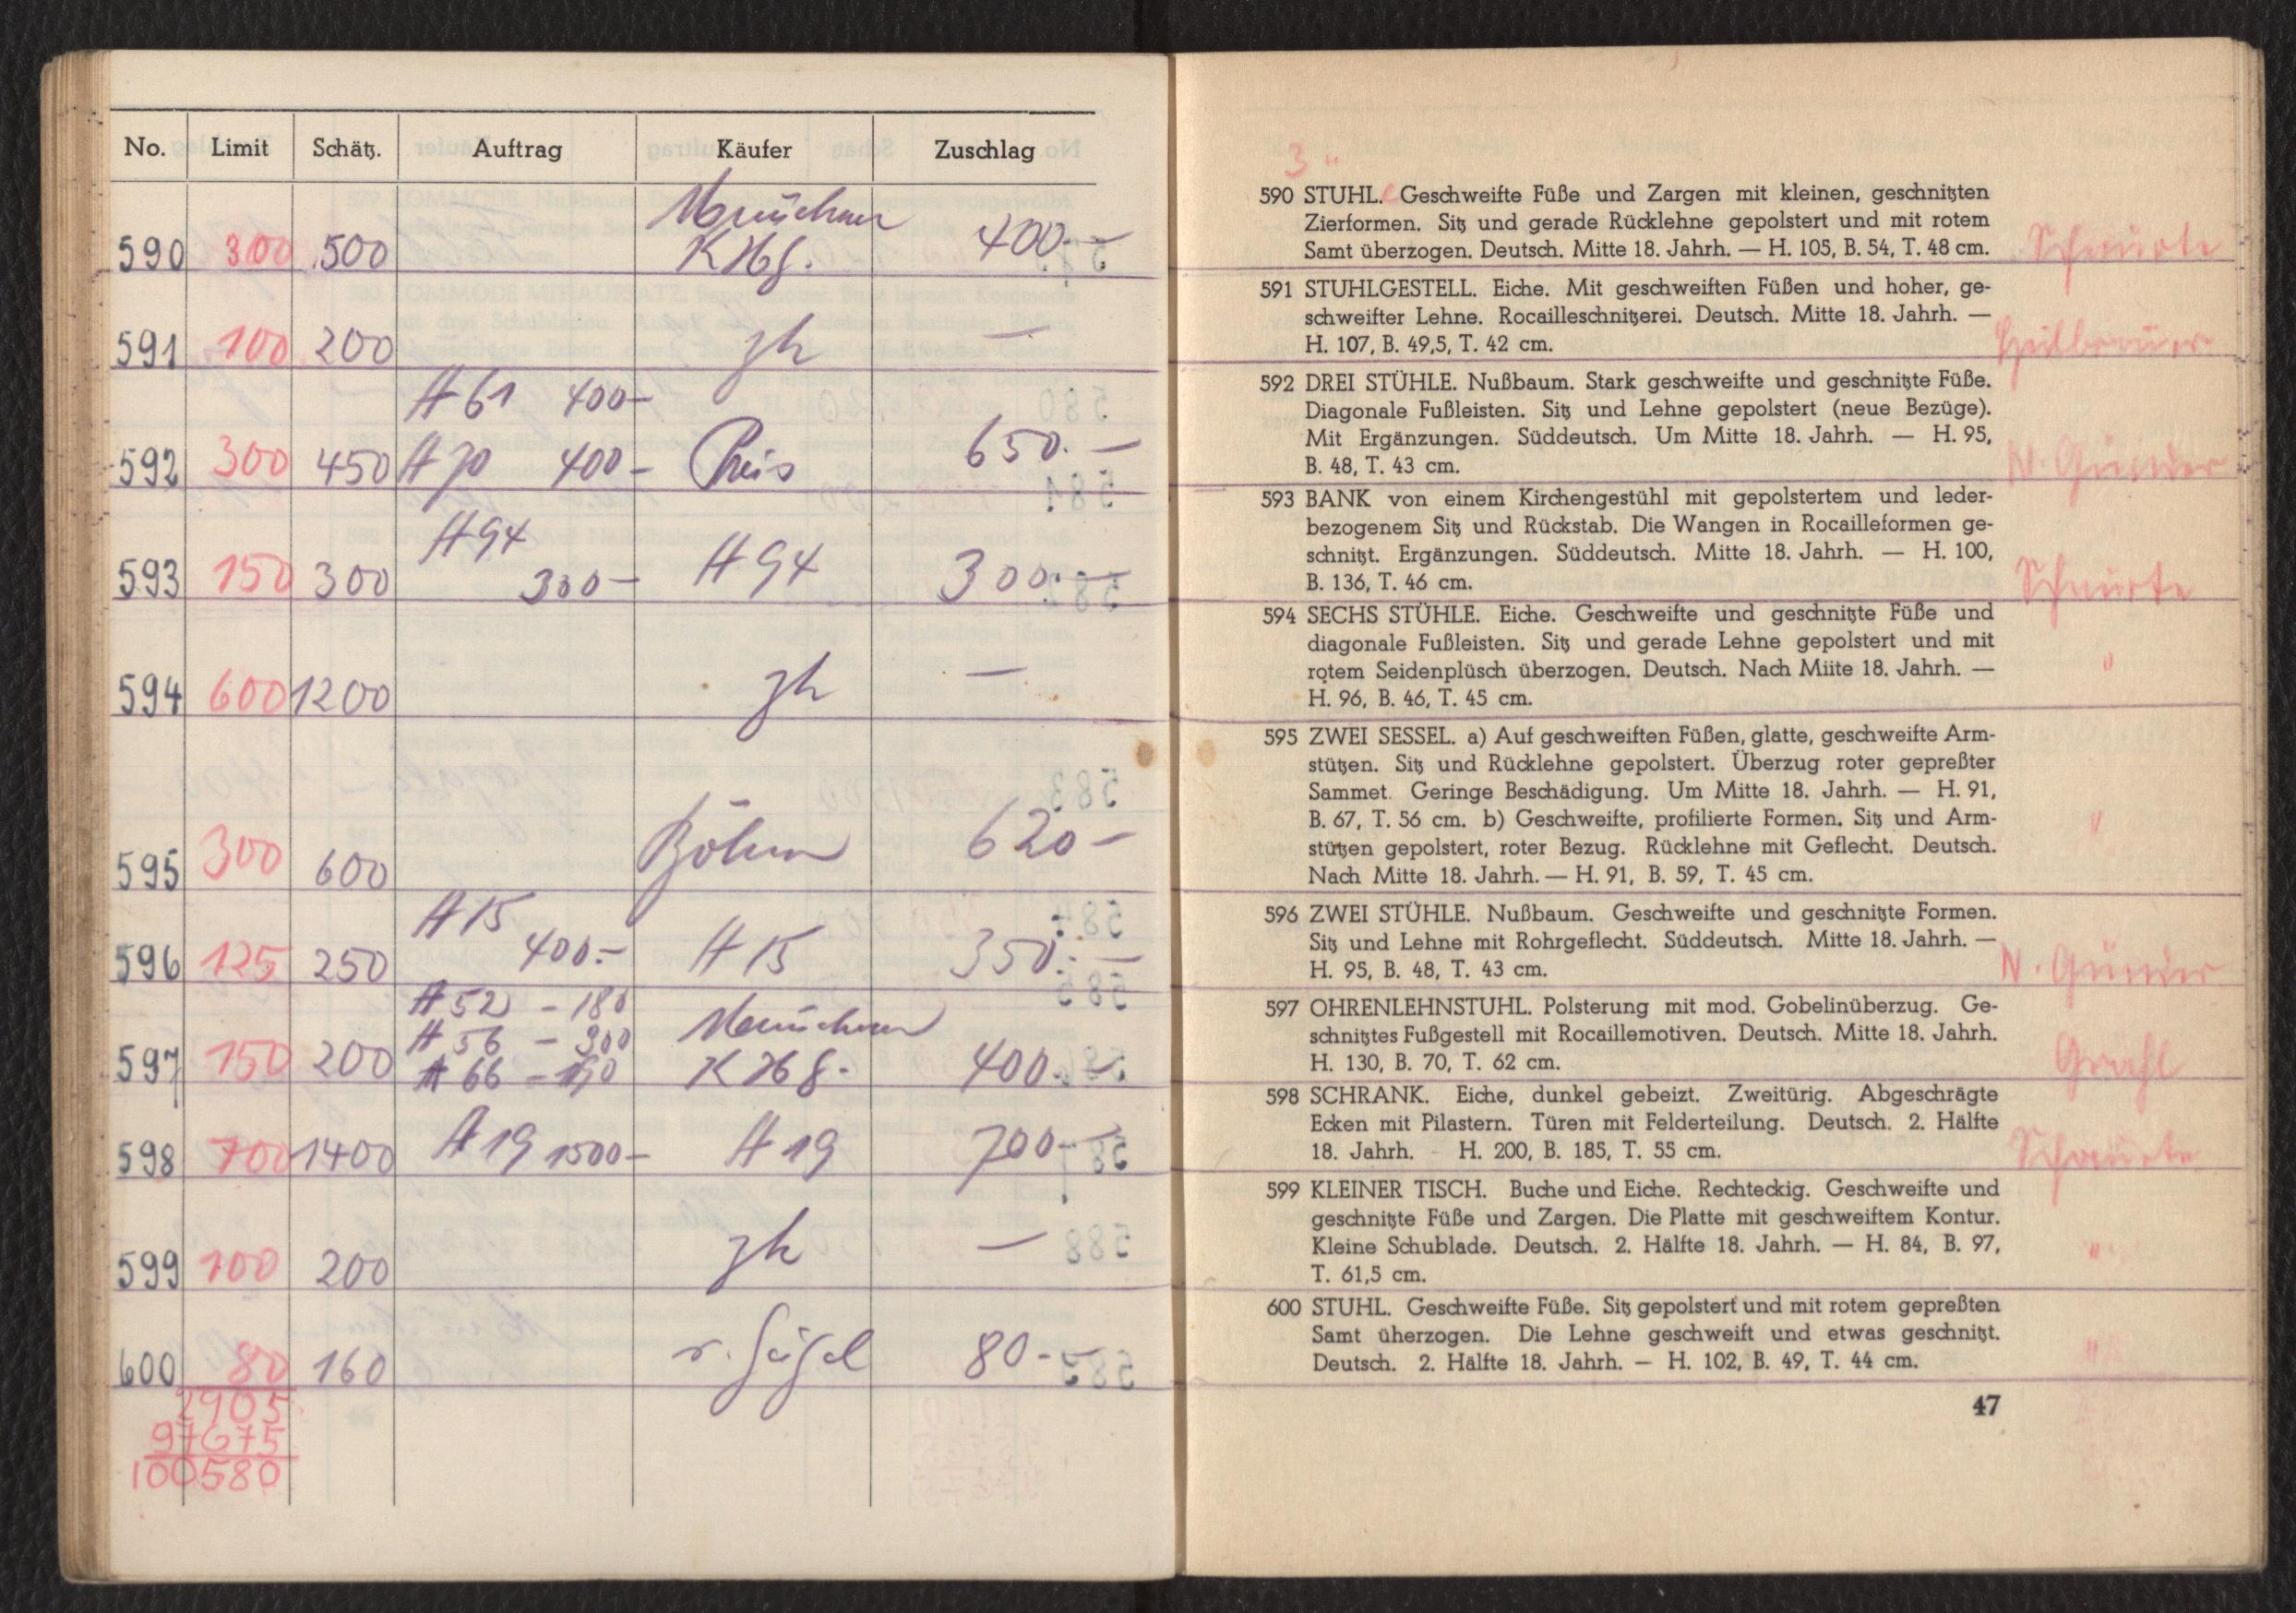 No. Limit Schätz. Auftrag Käufer Zuschlag
590 300 500 400.-
591 100 200 zh —
A 61 400-
592 300 450 A 70 400- 650.-
A 94
593 150 300 300- A 94 300.-
594 600 1200 zh —
595 300 600 Böhm 620-
A 15
596 125 250 400.- A 15 350.-
A 52 - 180
A 56 - 300
597 150 200 A 66 400.-
598 700 1400 A 19 1500- A 19 700-
599 100 200 zh —
600 80 160 80.-
2905
97675
100580
3 "
590 STUHL. Geschweifte Füße und Zargen mit kleinen, geschnitzten
Zierformen. Sitz und gerade Rücklehne gepolstert und mit rotem
Samt überzogen. Deutsch. Mitte 18. Jahrh. — H. 105, B. 54, T. 48 cm.
591 STUHLGESTELL. Eiche. Mit geschweiften Füßen und hoher, ge-
schweifter Lehne. Rocailleschnitzerei. Deutsch. Mitte 18. Jahrh. —
H. 107, B. 49,5, T. 42 cm. Heilbronner
592 DREI STÜHLE. Nußbaum. Stark geschweifte und geschnitzte Füße.
Diagonale Fußleisten. Sitz und Lehne gepolstert (neue Bezüge).
Mit Ergänzungen. Süddeutsch. Um Mitte 18. Jahrh. — H. 95,
B. 48, T. 43 cm.
593 BANK von einem Kirchengestühl mit gepolstertem und leder-
bezogenem Sitz und Rückstab. Die Wangen in Rocailleformen ge-
schnitzt. Ergänzungen. Süddeutsch. Mitte 18. Jahrh. — H. 100,
B. 136, T. 46 cm.
594 SECHS STÜHLE. Eiche. Geschweifte und geschnitzte Füße und
diagonale Fußleisten. Sitz und gerade Lehne gepolstert und mit
rotem Seidenplüsch überzogen. Deutsch. Nach Miite 18. Jahrh. — "
H. 96, B. 46, T. 45 cm.
595 ZWEI SESSEL. a) Auf geschweiften Füßen, glatte, geschweifte Arm-
stützen. Sitz und Rücklehne gepolstert. Überzug roter gepreßter
Sammet. Geringe Beschädigung. Um Mitte 18. Jahrh. — H. 91,
B. 67, T. 56 cm. b) Geschweifte, profilierte Formen. Sitz und Arm- "
stützen gepolstert, roter Bezug. Rücklehne mit Geflecht. Deutsch.
Nach Mitte 18. Jahrh. — H. 91, B. 59, T. 45 cm.
596 ZWEI STÜHLE. Nußbaum. Geschweifte und geschnitzte Formen.
Sitz und Lehne mit Rohrgeflecht. Süddeutsch. Mitte 18. Jahrh. —
H. 95, B. 48, T. 43 cm.
597 OHRENLEHNSTUHL. Polsterung mit mod. Gobelinüberzug. Ge-
schnitztes Fußgestell mit Rocaillemotiven. Deutsch. Mitte 18. Jahrh.
H. 130, B. 70, T. 62 cm. Grahl
598 SCHRANK. Eiche, dunkel gebeizt. Zweitürig. Abgeschrägte
Ecken mit Pilastern. Türen mit Felderteilung. Deutsch. 2. Hälfte
18. Jahrh. - H. 200, B. 185, T. 55 cm.
599 KLEINER TISCH. Buche und Eiche. Rechteckig. Geschweifte und
geschnitzte Füße und Zargen. Die Platte mit geschweiftem Kontur.
Kleine Schublade. Deutsch. 2. Hälfte 18. Jahrh. — H. 84, B. 97, "
T. 61,5 cm.
600 STUHL. Geschweifte Füße. Sitz gepolstert und mit rotem gepreßten
Samt üherzogen. Die Lehne geschweift und etwas geschnitzt. "
Deutsch. 2. Hälfte 18. Jahrh. — H. 102, B. 49, T. 44 cm.
47